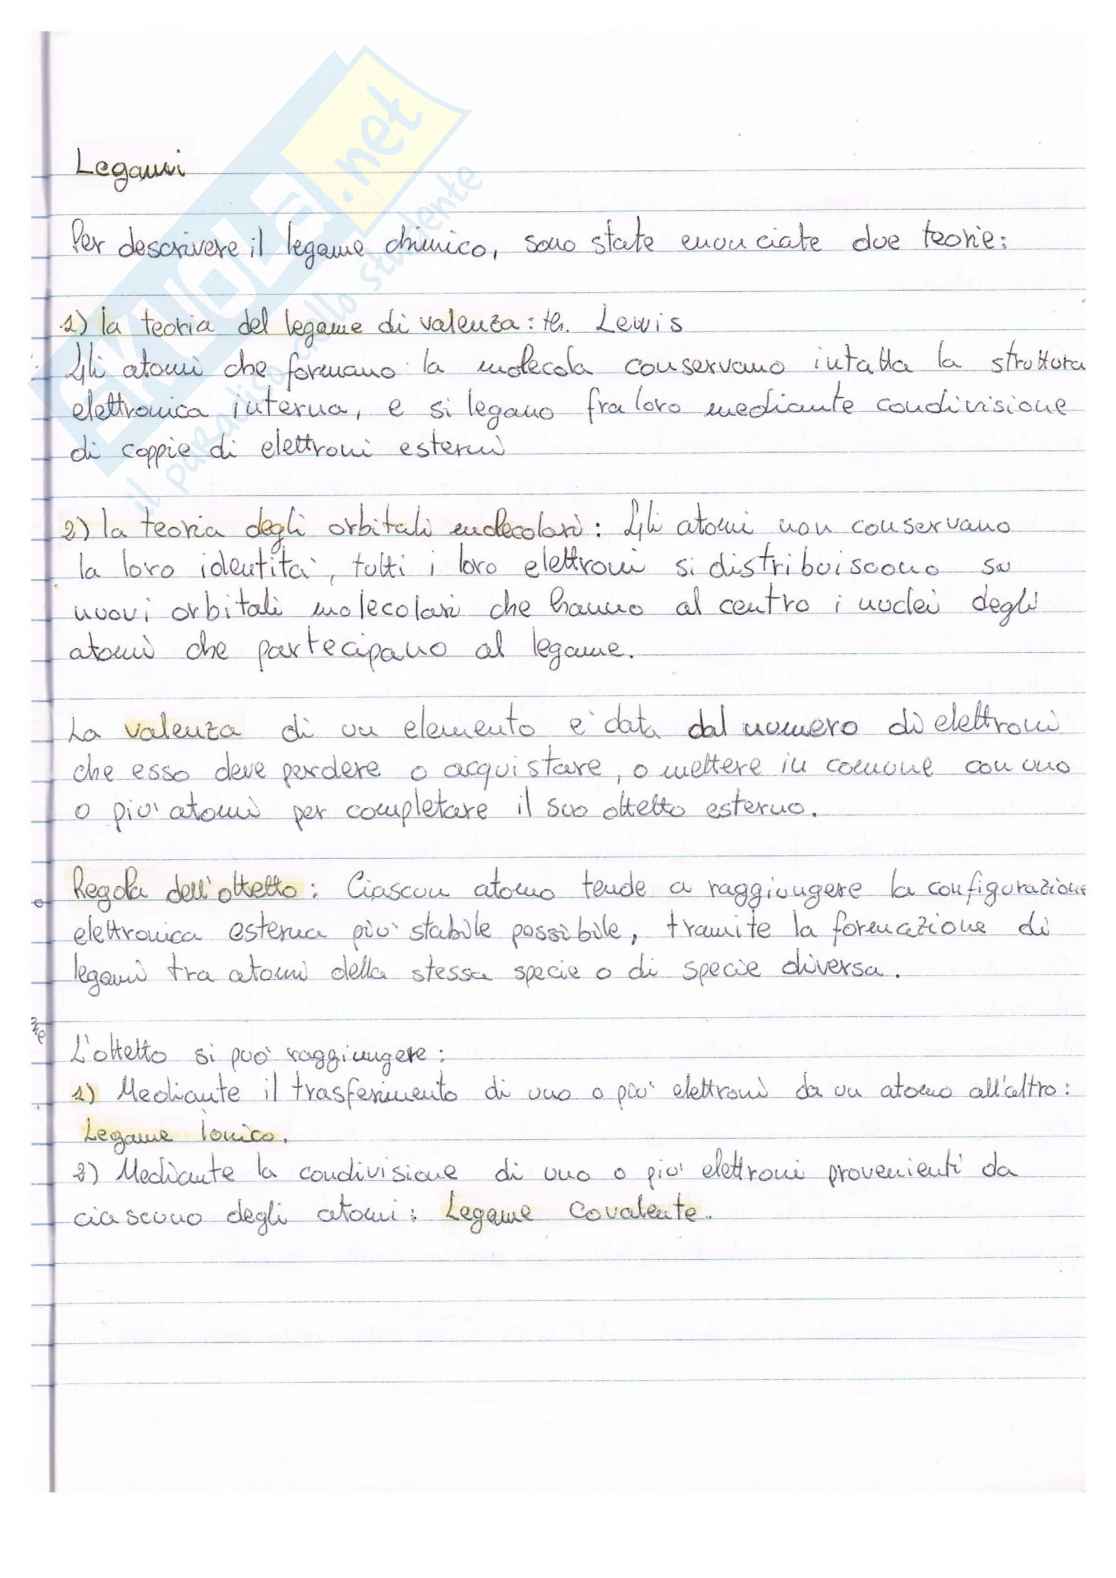 SKUOLA.net
il paradiso dello studente
Legami
Per descrivere il legame chimico, sono state enunciate due teorie:
1) la teoria del legame di valenza: th. Lewis
Gli atomi che formano la molecola conservano intatta la struttura
elettronica interna, e si legano fra loro mediante condivisione
di coppie di elettroni esterni
2) la teoria degli orbitali molecolari: Gli atomi non conservano
la loro identità, tutti i loro elettroni si distribuiscono su
nuovi orbitali molecolari che hanno al centro i nuclei degli
atomi che partecipano al legame.
La valenza di un elemento è data dal numero di elettroni
che esso deve perdere o acquistare, o mettere in comune con uno
o più atomi per completare il suo ottetto esterno.
Regola dell'ottetto: Ciascun atomo tende a raggiungere la configurazione
elettronica esterna più stabile possibile, tramite la formazione di
legami tra atomi della stessa specie o di specie diversa.
L'ottetto si può raggiungere:
1) Mediante il trasferimento di uno o più elettroni da un atomo all'altro:
Legame Ionico.
2) Mediante la condivisione di uno o più elettroni provenienti da
ciascuno degli atomi: Legame Covalente.